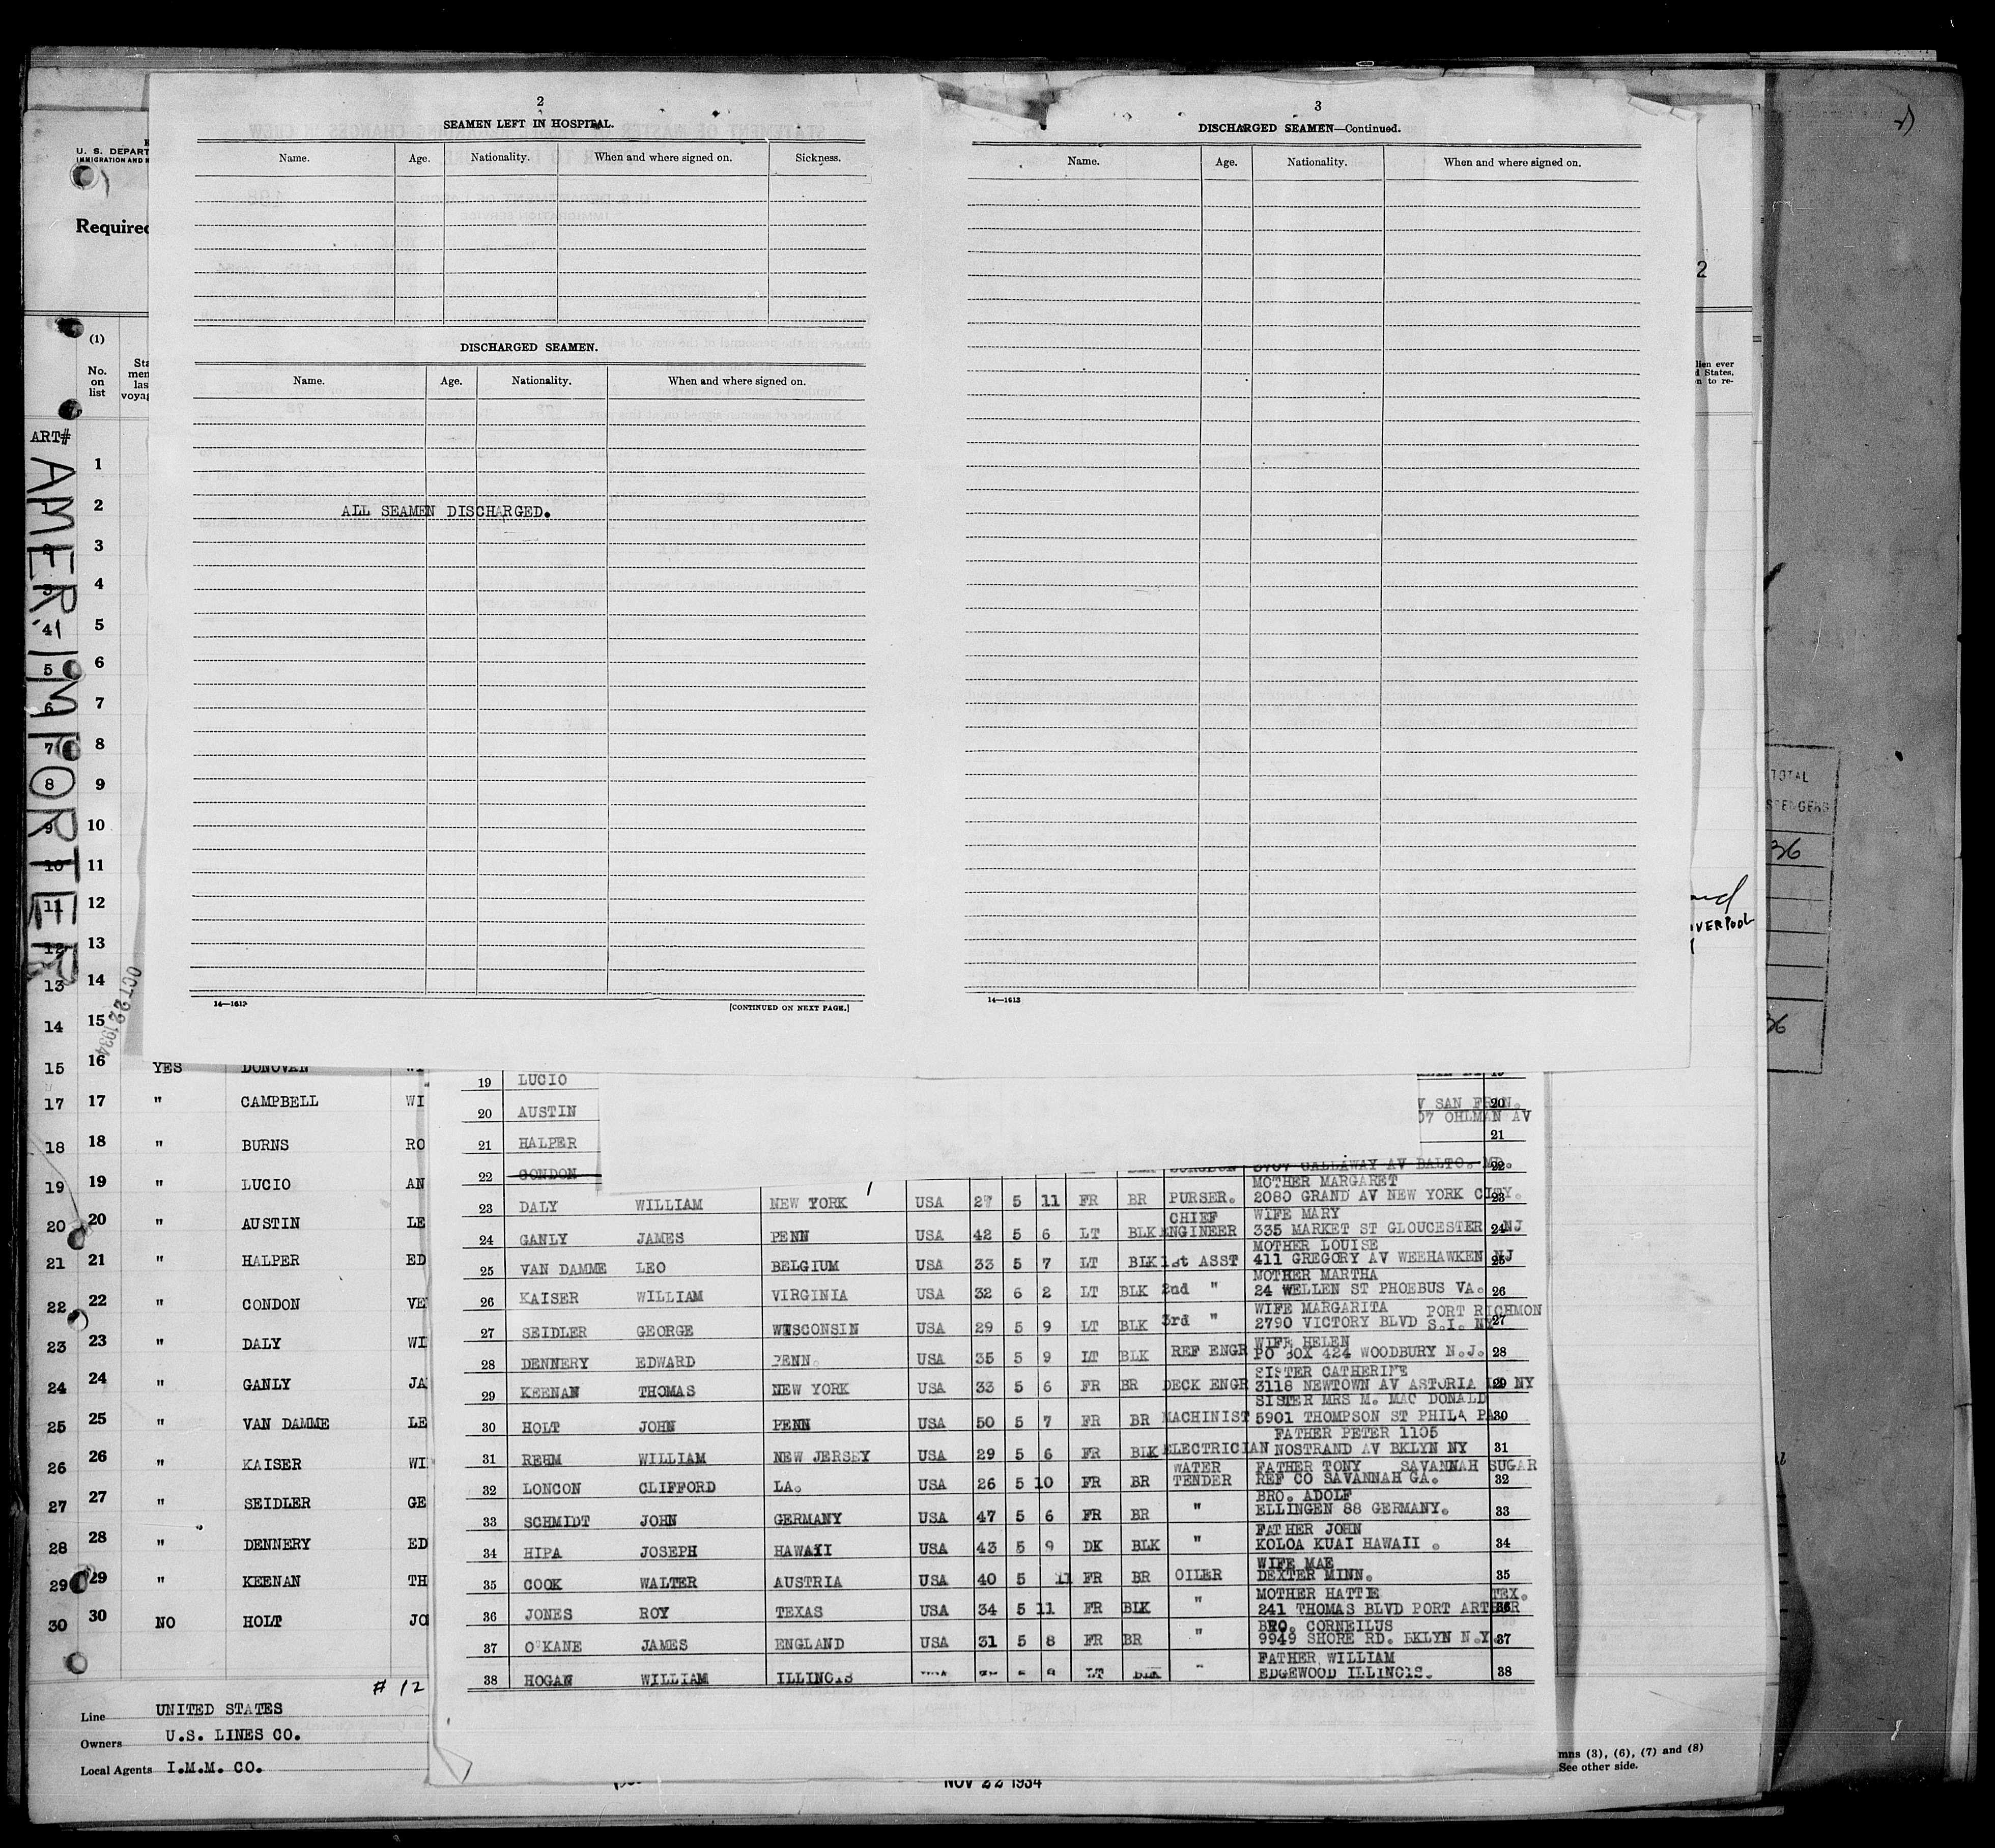 2
SEAMEN LEFT IN HOSPITAL.
Name. Age. Nationality. When and where signed on. Sickness.
DISCHARGED SEAMEN.
Name. Age. Nationality. When and where signed on.
ALL SEAMEN DISCHARGED.
14—1613
[CONTINUED ON NEXT PAGE.]
3
DISCHARGED SEAMEN—Continued.
Name. Age. Nationality. When and where signed on.
14—1613
U. S. DEPART
IMMIGRATION AND N
Required
(1)
No.
on
list
Sta
men
las
voyag
ART#
AMER. IMPORTER
1
2
3
4
5
6
7
8
9
10
11
12
13
14
15
OCT 22 1934
15 16 YES DONOVAN
17 17 " CAMPBELL WI
18 18 " BURNS RO
19 19 " LUCIO AN
20 20 " AUSTIN LE
21 21 " HALPER ED
22 22 " CONDON VE
23 23 " DALY WI
24 24 " GANLY JA
25 25 " VAN DAMME LE
26 26 " KAISER WI
27 27 " SEIDLER GE
28 28 " DENNERY ED
29 29 " KEENAN TH
30 30 NO HOLT JO
# 12
Line UNITED STATES
Owners U.S. LINES CO.
Local Agents I.M.M. CO.
19 LUCIO
20 AUSTIN V SAN FRAN. 20
07 OHLMAN AV
21 HALPER 21
22 CONDON BLK SURGEON 3707 CALLAWAY AV BALTO. MD. 22
MOTHER MARGARET
23 DALY WILLIAM NEW YORK USA 27 5 11 FR BR PURSER. 2080 GRAND AV NEW YORK CITY. 23
CHIEF WIFE MARY
24 GANLY JAMES PENN USA 42 5 6 LT BLK ENGINEER 335 MARKET ST GLOUCESTER NJ 24
MOTHER LOUISE
25 VAN DAMME LEO BELGIUM USA 33 5 7 LT BLK 1st ASST 411 GREGORY AV WEEHAWKEN NJ 25
MOTHER MARTHA
26 KAISER WILLIAM VIRGINIA USA 32 6 2 LT BLK 2nd " 24 WELLEN ST PHOEBUS VA. 26
WIFE MARGARITA PORT RICHMON
27 SEIDLER GEORGE WISCONSIN USA 29 5 9 LT BLK 3rd " 2790 VICTORY BLVD S.I. NY 27
WIFE HELEN
28 DENNERY EDWARD PENN. USA 35 5 9 LT BLK REF ENGR PO BOX 424 WOODBURY N.J. 28
SISTER CATHERINE
29 KEENAN THOMAS NEW YORK USA 33 5 6 FR BR DECK ENGR 3118 NEWTOWN AV ASTORIA NY 29
SISTER MRS M. MAC DONALD
30 HOLT JOHN PENN USA 50 5 7 FR BR MACHINIST 5901 THOMPSON ST PHILA PA 30
FATHER PETER 1105
31 REHM WILLIAM NEW JERSEY USA 29 5 6 FR BLK ELECTRICIAN NOSTRAND AV BKLYN NY 31
WATER FATHER TONY SAVANNAH SUGAR
32 LONCON CLIFFORD LA. USA 26 5 10 FR BR TENDER REF CO SAVANNAH GA. 32
BRO. ADOLF
33 SCHMIDT JOHN GERMANY USA 47 5 6 FR BR " ELLINGEN 88 GERMANY. 33
FATHER JOHN
34 HIPA JOSEPH HAWAII USA 43 5 9 DK BLK " KOLOA KUAI HAWAII . 34
WIFE MAE
35 COOK WALTER AUSTRIA USA 40 5 11 FR BR OILER DEXTER MINN. 35
MOTHER HATTIE TEX.
36 JONES ROY TEXAS USA 34 5 11 FR BLK " 241 THOMAS BLVD PORT ARTHUR 36
BRO. CORNEILUS
37 O'KANE JAMES ENGLAND USA 31 5 8 FR BR " 9949 SHORE RD. BKLYN N.Y. 37
FATHER WILLIAM
38 HOGAN WILLIAM ILLINOIS LT BLK " EDGEWOOD ILLINOIS. 38
NOV 22 1934
2
lien ever
d States,
n to re-
IVERPOOL
TOTAL
36
36
mns (3), (6), (7) and (8)
See other side.